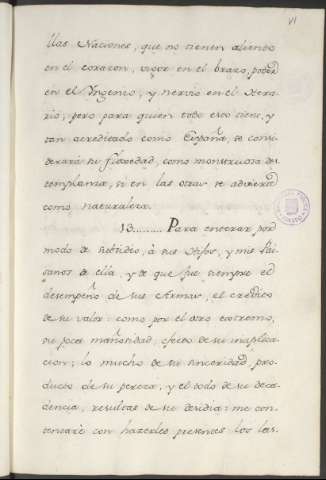 VI
llas Naciones, que no tienen aliento
en el corazon, vigor en el brazo, poder
en el Yngenio, y nervio en el Hera-
rio; pero para quien todo esto tiene, y
tan acreditado como España, se consi-
derará su floxedad, como monstruosa des
templanza, si en las otras se advierte
como naturaleza.
13......... Para enterar por
modo de
à sus Hijos, y mis Pai-
sanos de ella, y de que fue siempre el
desempeño de sus Armas, el credito
de su valor: como por el otro extremo,
su poca mañosidad, efecto de su inaplica-
cion; lo mucho de su sinceridad, pro-
ducto de su pereza, y el todo de su deca-
dencia, resultas de su desidia: me con-
tentaré con hazerles presentes los las-